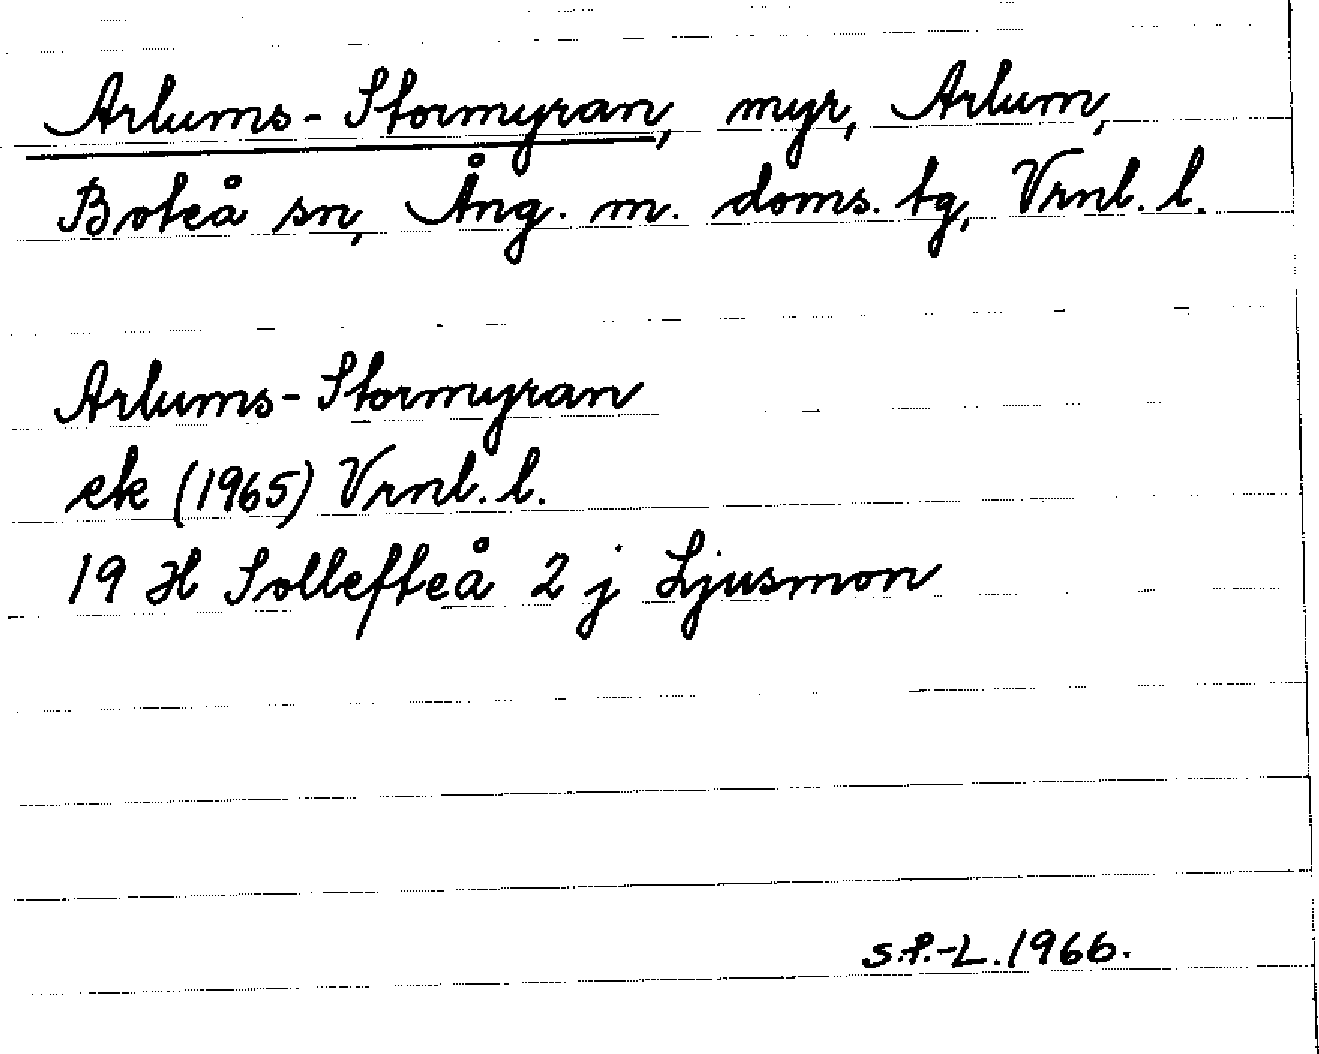 Arlums-Stormyran, myr, Arlum,
Boteå sn, Ång. m. doms. tg, Vrnl. l.
Arlums-Stormyran
ek (1965) Vrnl. l.
19 H Sollefteå 2 j Ljusmon
S.P.-L. 1966.